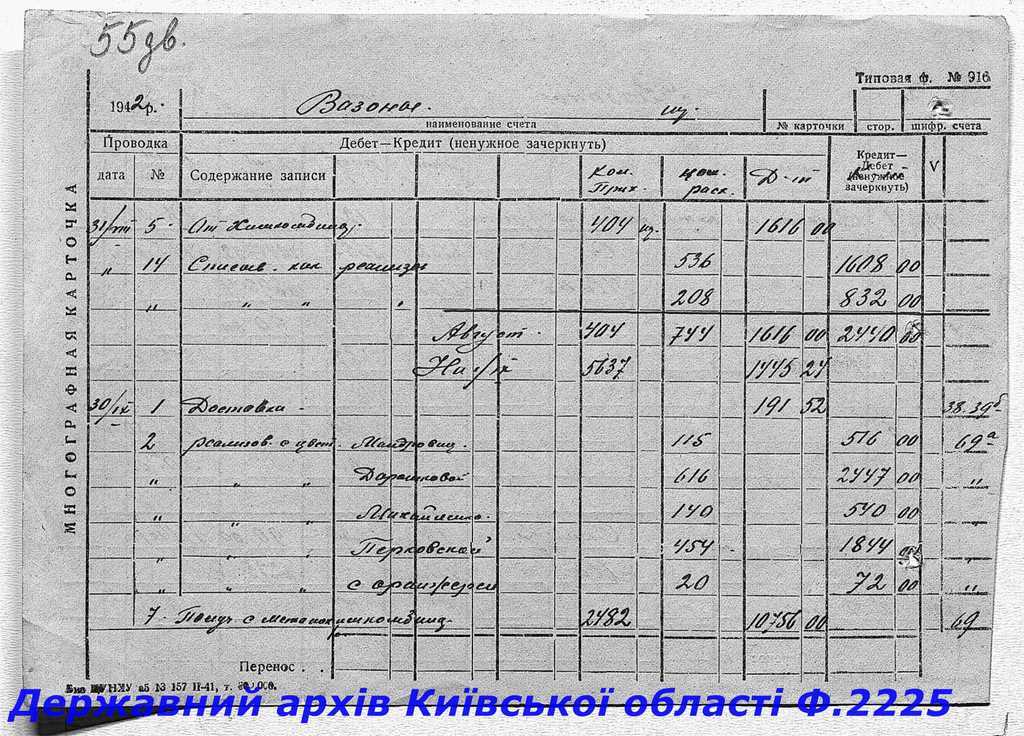 55 дв.
Типовая ф. № 916
1942 р. Вазоны. шт.
наименование счета № карточки стор. шифр. счета
Проводка Дебет—Кредит (ненужное зачеркнуть) Кредит—Дебет (ненужное зачеркнуть) V
дата № Содержание записи кол. прих. кол. расх. Д-т К-т
МНОГОГРАФНАЯ КАРТОЧКА
31/VIII 5 От 404 шт. 1616 00
„ 14 Списыв. как реализов 536 1608 00
„ „ „ „ 208 832 00
Август 404 744 1616 00 2440 00
На 1/IX 5637 1445 24
30/IX 1 Доставка 191 52 38.39б
2 реализов. с цвет. 115 516 00 69а
„ „ „ Дорошковой 616 2447 00 „
„ „ „ Михайленко 140 540 00 „
„ „ Перковской 454 1844 „
„ „ „ с оранжереи 20 72 00 „
7 2482 10756 00 69
Перенос . .
157 II-41, т.
Державний архів Київської області Ф.2225